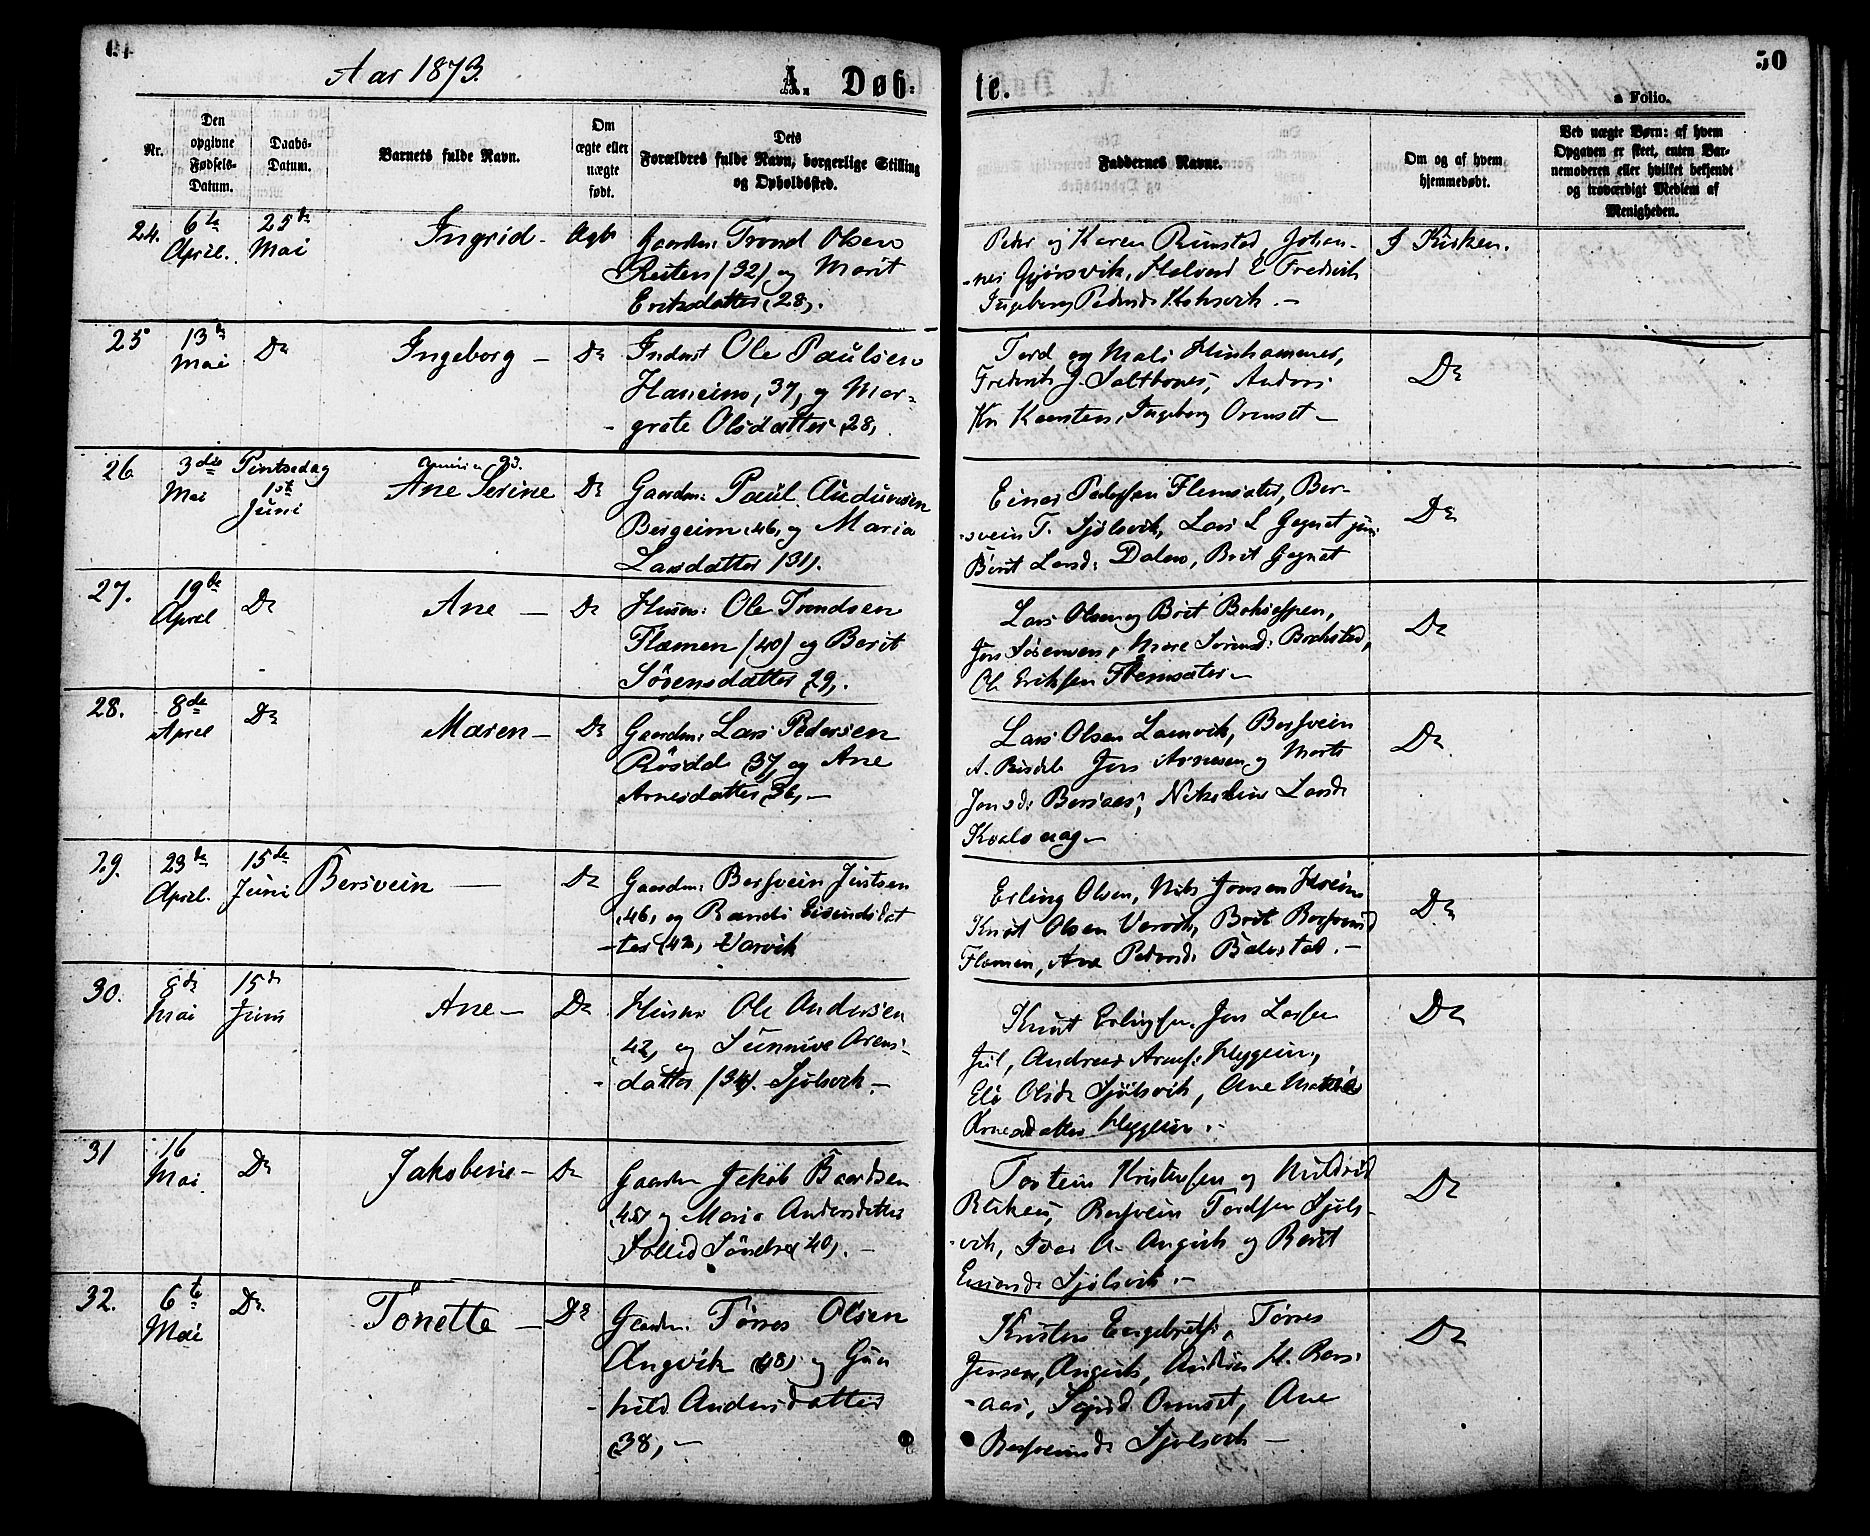 Aar 1873.
A. Døb-
te.
50
a Folio.
Nr.
Den
opgivne
Fødsels-
Datum.
Daabs-
Datum.
Barnets fulde Navn.
Om
ægte eller
uægte
født.
Dets
Forældres fulde Navn, borgerlige Stilling
og Opholdssted.
Faddernes Navne.
Om og af hvem
hjemmedøbt.
Ved uægte Børn: af hvem
Opgaven er skeet, enten Bar-
nemoderen eller hvilket bekjendt
og troværdigt Medlem af
Menigheden.
24. 6te April. 25de Mai Ingrid - Ægte
Gaardm: Trond Olsen
Reiten (32) og Marit
Eriksdatter (28).
Peder og Karen Rimstad, Johan-
-nes Gjørsvik, Halvard E Fredvik
Ingeborg Pedersd:
I Kirken.
25 13de Mai Do Ingeborg - Do
Inderst Ole Paulsen
37, og Mar-
grete Olsdatter 28,
Tord og Mali
Frederik J. Saltbones, Anders
Kn Karsten, Ingeborg Ormset -
Do
26 3die Mai Pintsedag 1ste Juni
Ane Serine Do
Gaardm: Paul Audunsen
Bergeim 46, og Maria
Larsdatter (31).
Einar Pedersen Flemsæter, Ber-
-svein T. Sjølsvik, Lars L Gagnat jun:
Berit Larsd: Dalen, Brit Gagnat
Do
27. 19de April Do Ane - Do
Husm: Ole Trondsen
Flaamen (40) og Berit
Sörensdatter 29,.
Lars Olsen og Brit
Jon Sörensen, Mare Sörensd:
Ole Eriksen Flemsæter -
Do
28. 8de April Do Maren - Do
Gaardm: Lars Pedersen
37, og Ane
Arnesdatter 36, -
Lars Olsen Lamvik, Bersvein
A. Jon Arnesen og Marit
Jonsd: Børsaas, Larsd:
Kvalvaag -
Do
29. 23de April. 15de Juni Bersvein - Do
Gaardm: Bersvein Justsen
46, og Randi Eivindsdat
-ter (42, Varvik
Erling Olsen, Nils Jonsen
Knut Olsen Varvik, Brit Bersveinsd
Flaamen, Ane Pedersd:
Do
30. 8de Mai 15de Juni Ane - Do
Husm Ole Andersen
42, og Sunnive Arens-
-datter (34). Sjølsvik -
Knut Erlingsen, Jon Larsen
Jul, Andreas Arnes: Hyggein,
Eli Olsd: Sjølsvik, Ane
Arnesdatter Hyggein. -
Do
31 16 Mai Do Jakobine - Do
Gaardm Jakob Baardsen
45, og Maria Andersdatter
Sollid Söndre (40). -
Tostein Kristensen og Mildrid
Bersvein Tordsen Sjøls-
-vik, Iver A. Angvik og Berit
Sjølsvik. -
Do
32. 6te Mai Do Tonette - Do
Gaardm: Törres Olsen
Angvik (48) og Gun
hild Andersdatter
(38, -
Kristen Engebrets:, Törres
Jensen, Angvik, H. Børs-
-aas, Sigrid Ormset, Ane
Bersveinsd: Sjølsvik -
Do